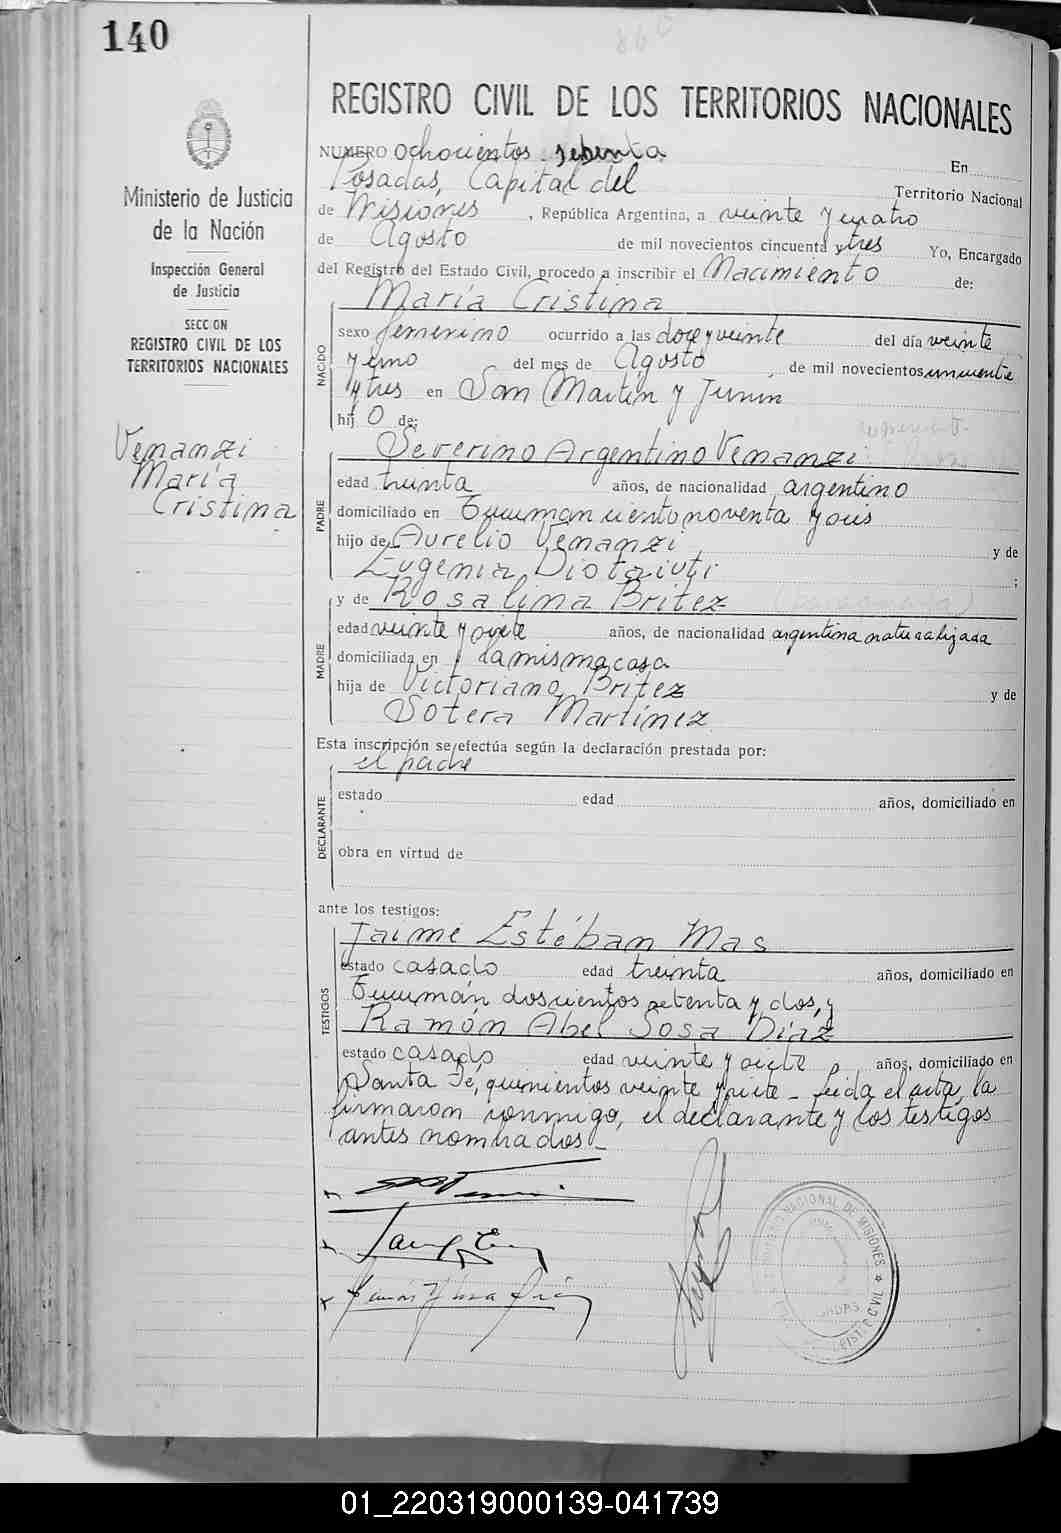 140
REGISTRO CIVIL DE LOS TERRITORIOS NACIONALES
Ministerio de Justicia
de la Nación
Inspección General
de Justicia
SECCION
REGISTRO CIVIL DE LOS
TERRITORIOS NACIONALES
Venanzi
María
Cristina
NUMERO ochocientos setenta En
Posadas, Capital del Territorio Nacional
de Misiones, República Argentina, a veinte y cuatro
de Agosto de mil novecientos cincuenta y tres Yo, Encargado
del Registro del Estado Civil, procedo a inscribir el Nacimiento de:
María Cristina
NACIDO
sexo femenino ocurrido a las doce y veinte del día veinte
y uno del mes de Agosto, de mil novecientos cincuenta
y tres en San Martín y Junín
hij o de:
Severino Argentino Venanzi
PADRE
edad treinta años, de nacionalidad argentino
domiciliado en Tucumán ciento noventa y seis
hijo de Aurelio Venanzi y de
Eugenia Diotaiuti;
y de Rosalina Britez
MADRE
edad veinte y siete años, de nacionalidad argentina naturalizada
domiciliada en la misma casa
hija de Victoriano Britez y de
Sotera Martínez
Esta inscripción se efectúa según la declaración prestada por:
el padre
DECLARANTE
estado edad años, domiciliado en
obra en virtud de
ante los testigos:
Jaime Estéban Mas
TESTIGOS
estado casado edad treinta años, domiciliado en
Tucumán doscientos setenta y dos, y
Ramón Abel Sosa Díaz
estado casado edad veinte y siete años, domiciliado en
Santa Fé, quinientos veinte y siete - Leida el acta, la
firmaron conmigo, el declarante y los testigos
antes nombrados -
NACIONAL DE MISIONES
01_220319000139-041739